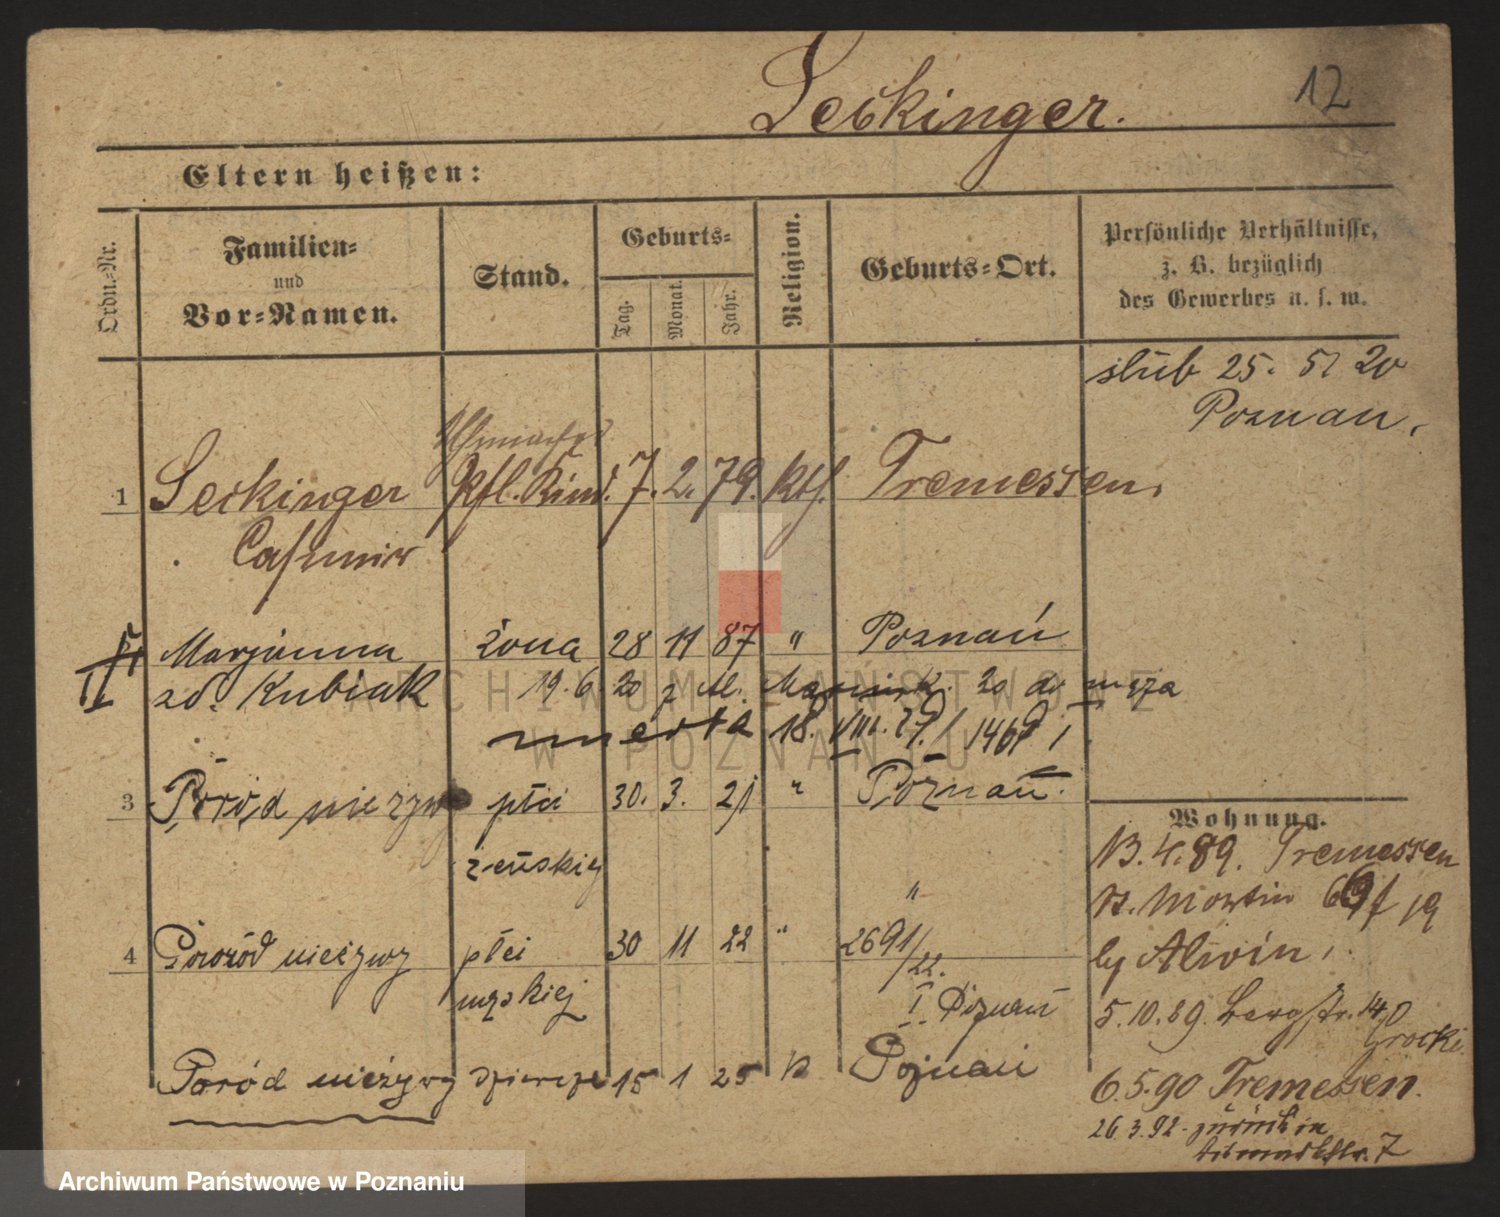 Seckinger.
12
Eltern heißen:
Ordn.-Nr.
Familien-
und
Vor-Namen.
Stand.
Geburts-
Tag.
Monat.
Jahr.
Religion.
Geburts-Ort.
Persönliche Verhältnisse,
z. B. bezüglich
des Gewerbes u. s. w.
ślub 25. 5 20
Poznań.
1 Seckinger Kfl. 7. 2. 79. Kth. Tremessen.
Casimir
II Marjanna żona 28 11 87 " Poznań
zd. Kubiak 19.6 20 z 20 do męża
umarła 18. VIII. 27. / 1467 I
3 Poród nieżywy płci 30. 3. 21 " Poznań.
żeńskiej
Wohnung.
13.4.89. Tremessen
St. Martin 69 f 19
"
4 Poród nieżywy płci 30 11 22 " 2691/22.
by Alwin,
męskiej I Poznań
5.10.89. Bergstr. 14
Poród nieżywy 15 1 25 K Poznań
6.5.90 Tremessen.
26.3.92. zurück in
7
ARCHIWUM PAŃSTWOWE
W POZNANIU
Archiwum Państwowe w Poznaniu